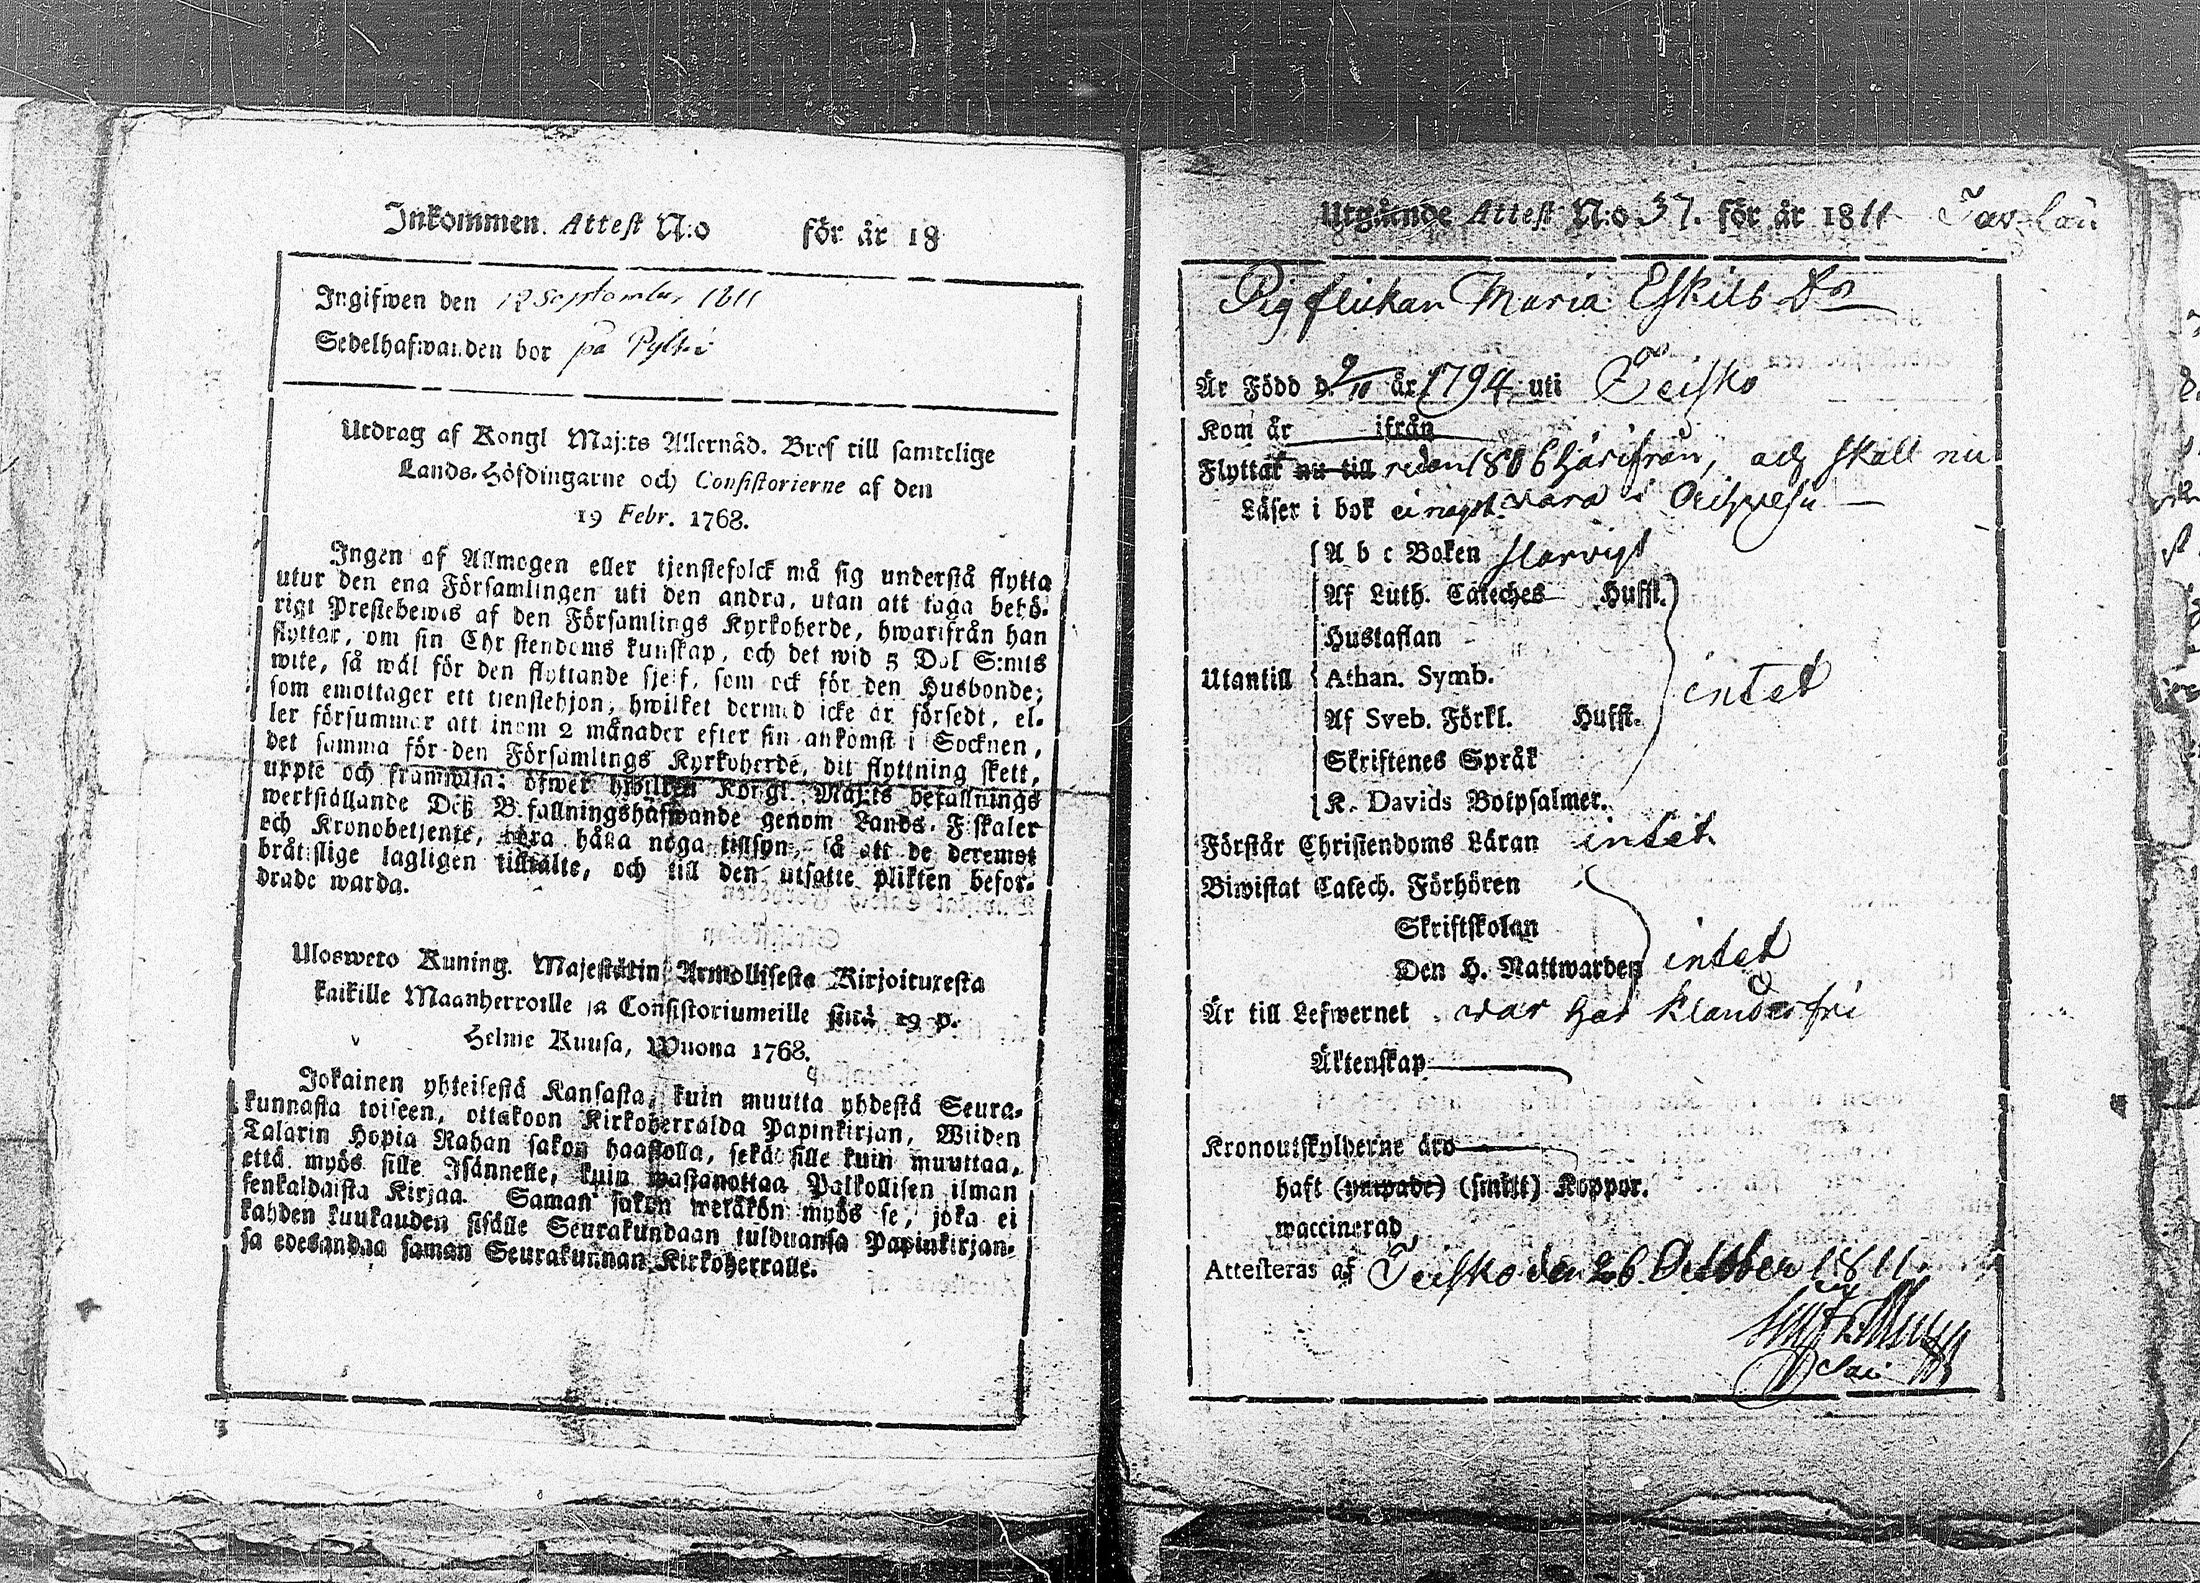 Inkommen Attest N:o för år 18
Ingifwen den 19 September 1811
Sedelhafwanden bor på
Utdrag af Kongl Maj:ts Allernåd. Bref till samtelige
Lands-Höfdingarne och Consistorierne af den
19 Febr. 1768.
Ingen af Allmogen eller tjenstefolck må sig understå flytta
utur den ena Församlingen uti den andra, utan att taga behö-
rigt Prestebewis af den Församlings Kyrkoherde, hwarifrån han
flyttar, om sin Christendoms kunskap, och det wid 5 Dal S:mts
wite, så wäl för den flyttande sjelf, som ock för den Husbonde,
som emottager ett tienstehjon, hwilket dermed icke är försedt, el-
ler försummar att inom 2 månader efter sin ankomst i Socknen,
det samma för den Församlings Kyrkoherde, dit flyttning skett,
uppte och framwisa; öfwer hwilken Kongl. Maj:ts befallnings
werkställande Deß Befallningshafwande genom Lands-Fiskaler
och Kronobetjente, böra hålla noga tillsyn, så att de deremot
bråtslige lagligen tilltalte, och till den utsatte plikten befor-
drade warda.
Ulosweto Kuning. Majestätin Armollisesta Kirjoituxesta
kaikille Maanherroille ja Consistoriumeille siitä 19 p.
Helme Kuusa, Wuona 1768.
Jokainen yhteisestä Kansasta, kuin muutta yhdestä Seura-
kunnasta toiseen, ottakoon Kirkoherralda Papinkirjan, Wiiden
Talarin Hopia Rahan sakon haastolla, sekä sille kuin muuttaa,
että myös sille Isännelle, kuin wastanottaa Palkollisen ilman
senkaldaista Kirjaa. Saman sakon wetäkön myös se, joka ei
kahden kuukauden sisälle Seurakundaan tulduansa Papinkirjan-
sa edesandaa saman Seurakunnan Kirkoherralle.
Utgående Attest N:o 37. för år 1811
Pigflickan Maria Eskils Dr
Är Född d. 9/10 år 1794 uti Teisko
Kom år ifrån
Flyttat nu till redan 1806 härifrån, och skall nu
Läser i bok ei något wara i
A b c Boken slarvigt
Af Luth. Cateches Huffst.
Hustaflan
Utantill Athan. Symb. intet
Af Sveb. Förkl. Huffst.
Skriftenes Språk
K. Davids Botpsalmer.
Förstår Christendoms Läran intet
Biwistat Catech. Förhören
Skriftskolan
Den H. Nattwarden intet
Är till Lefwernet war här klanderfri
Äktenskap
Kronoutskylderne äro
haft (yttpade) (smått) Koppor.
waccinerad,
Attesteras af Teisko den 26 October 1811.